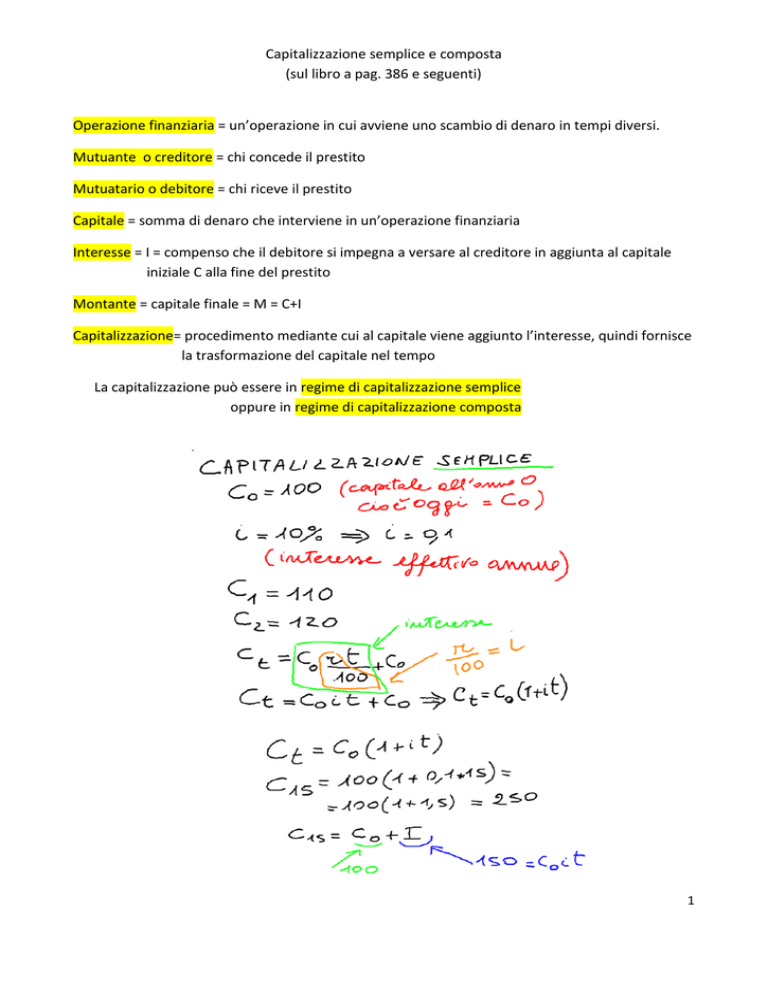 Capitalizzazione semplice e composta
(sul libro a pag. 386 e seguenti)
Operazione finanziaria = un’operazione in cui avviene uno scambio di denaro in tempi diversi.
Mutuante o creditore = chi concede il prestito
Mutuatario o debitore = chi riceve il prestito
Capitale = somma di denaro che interviene in un’operazione finanziaria
Interesse = I = compenso che il debitore si impegna a versare al creditore in aggiunta al capitale
iniziale C alla fine del prestito
Montante = capitale finale = M = C+I
Capitalizzazione= procedimento mediante cui al capitale viene aggiunto l’interesse, quindi fornisce
la trasformazione del capitale nel tempo
La capitalizzazione può essere in regime di capitalizzazione semplice
oppure in regime di capitalizzazione composta
CAPITALIZZAZIONE SEMPLICE
C₀ = 100 (capitale all'anno 0
cioè oggi = C₀)
i = 10% ⇒ i = 0,1
(interesse effettivo annuo)
C₁ = 110
C₂ = 120 interesse
Ct = C₀ rt/100 + C₀ r/100 = i
Ct = C₀ i t + C₀ ⇒ Ct = C₀(1+it)
Ct = C₀(1+it)
C₁₅ = 100(1+0,1*15) =
= 100(1+1,5) = 250
C₁₅ = C₀ + I
100 150 = C₀it
1